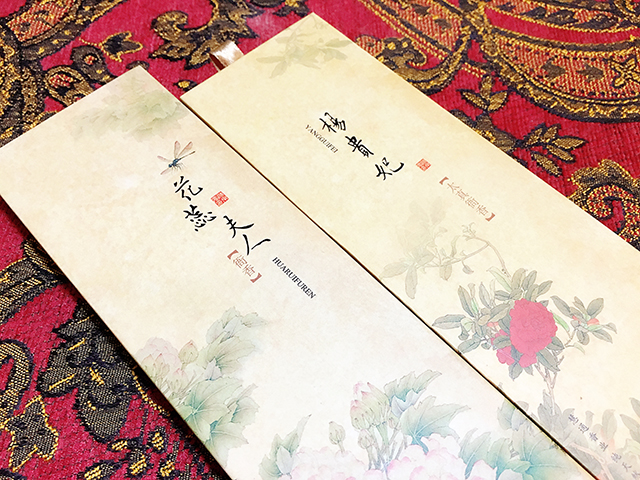 花蕊夫人
【衙香】
HUARUIFUREN
楊貴妃
YANGGUIFEI
【太真衙香】